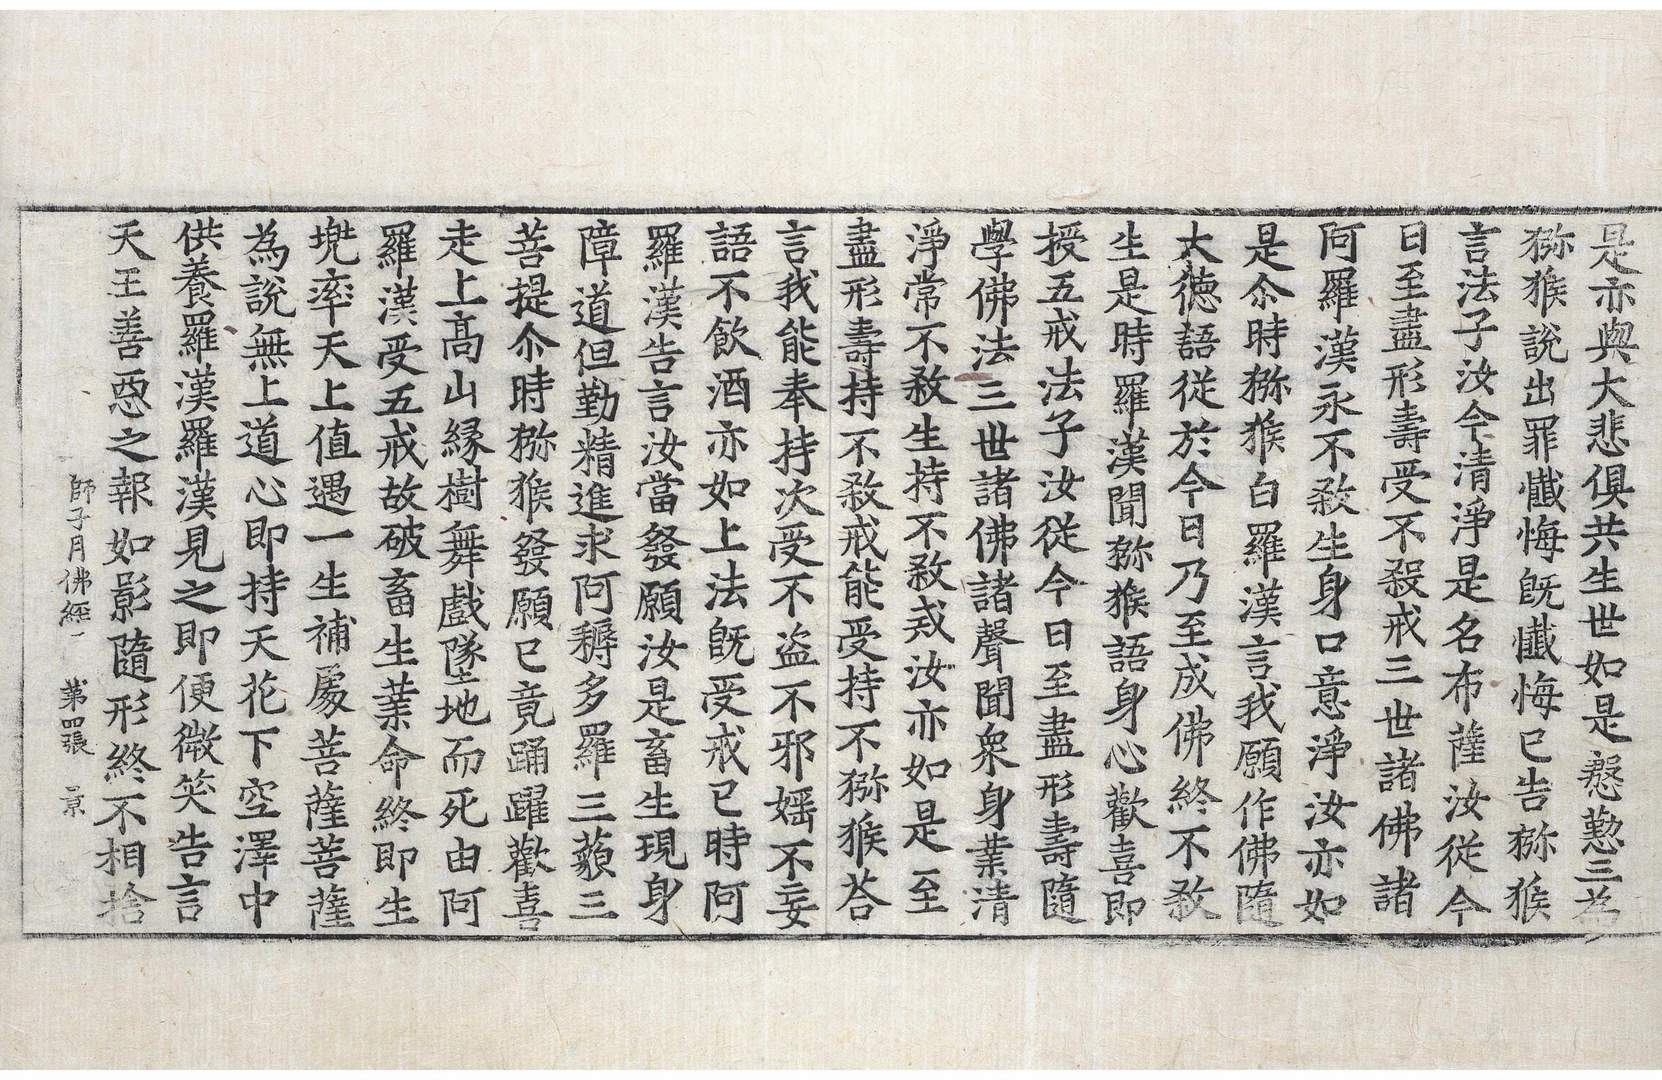 是亦與大悲俱共生世如是慇懃三為
猕猴說出罪懺悔旣懺悔已告猕猴
言法子汝今清淨是名布薩汝從今
日至盡形壽受不殺戒三世諸佛諸
阿羅漢永不敎生身口意淨汝亦如
是尒時猕猴白羅漢言我願作佛隨
大德語從於今日乃至成佛終不敎
生是時羅漢聞猕猴語身心歡喜即
授五戒法子汝從今日至盡形壽隨
學佛法三世諸佛諸聲聞衆身業清
淨常不敎生持不敎戒汝亦如是至
盡形壽持不敎戒能受持不猕猴荅
言我能奉持次受不盜不邪婬不妄
語不飮酒亦如上法旣受戒已時阿
羅漢告言汝當發願汝是畜生現身
障道但勤精進求阿耨多羅三藐三
菩提尒時猕猴發願已竟踊躍歡喜
走上高山緣樹舞戲墜地而死由阿
羅漢受五戒故破畜生業命終即生
兠率天上值遇一生補處菩薩菩薩
為說無上道心即持天花下空澤中
供養羅漢羅漢見之即便微笑告言
天王善惡之報如影隨形終不相捨
師子月佛經 第四張 景